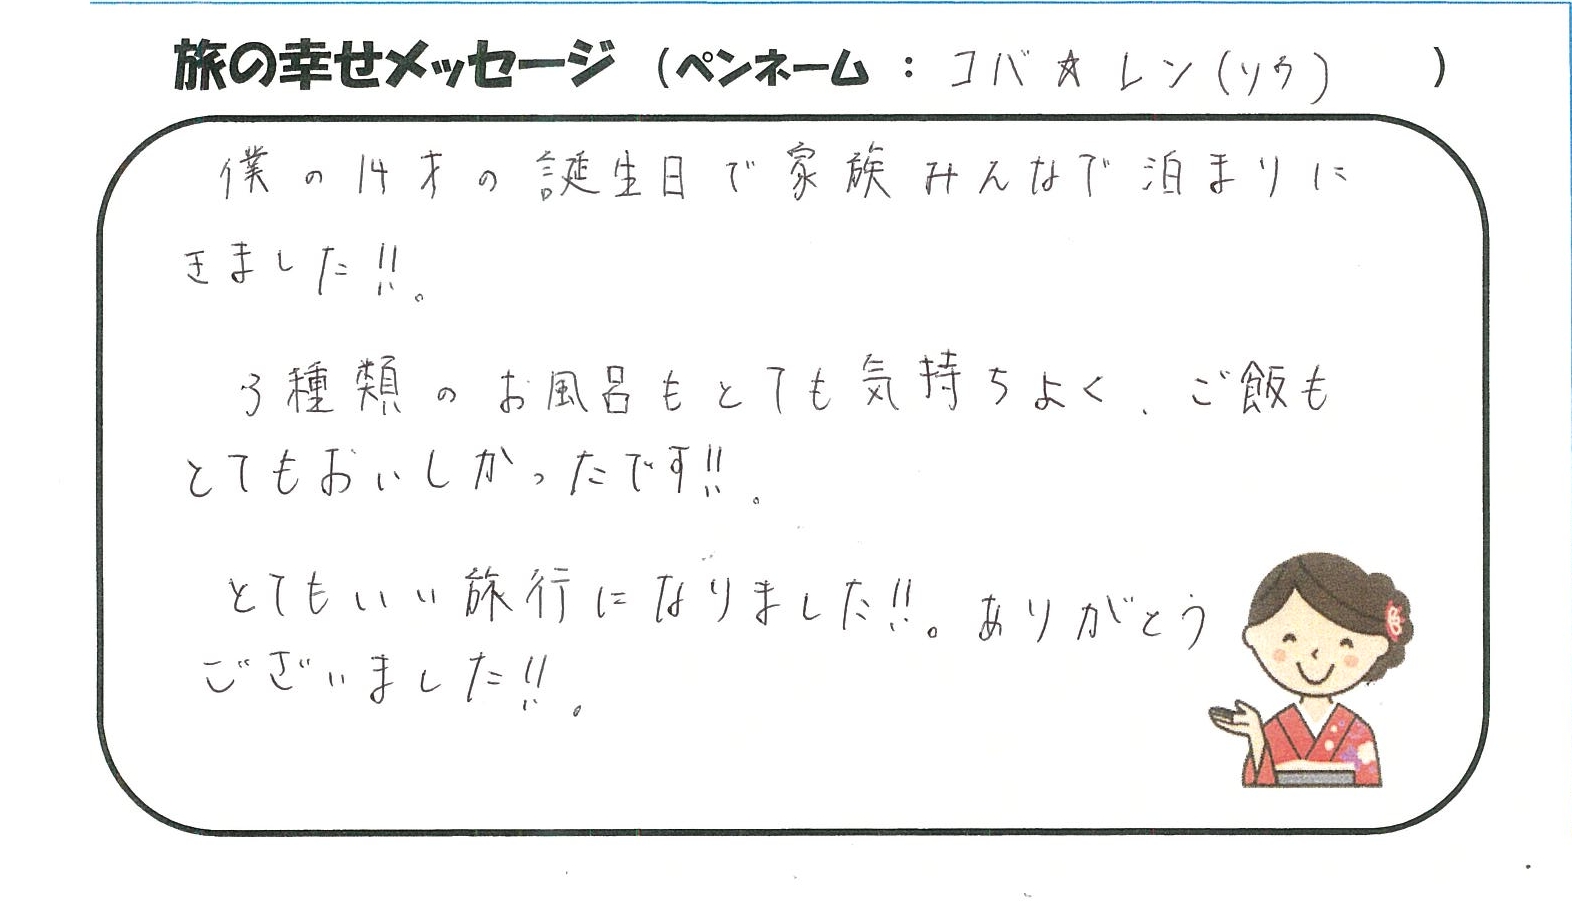 旅の幸せメッセージ（ペンネーム：コバ☆レン(ソウ)）
僕の14才の誕生日で家族みんなで泊まりに
きました!!。
3種類のお風呂もとても気持ちよく、ご飯も
とてもおいしかったです!!。
とてもいい旅行になりました!!。ありがとう
ございました!!。